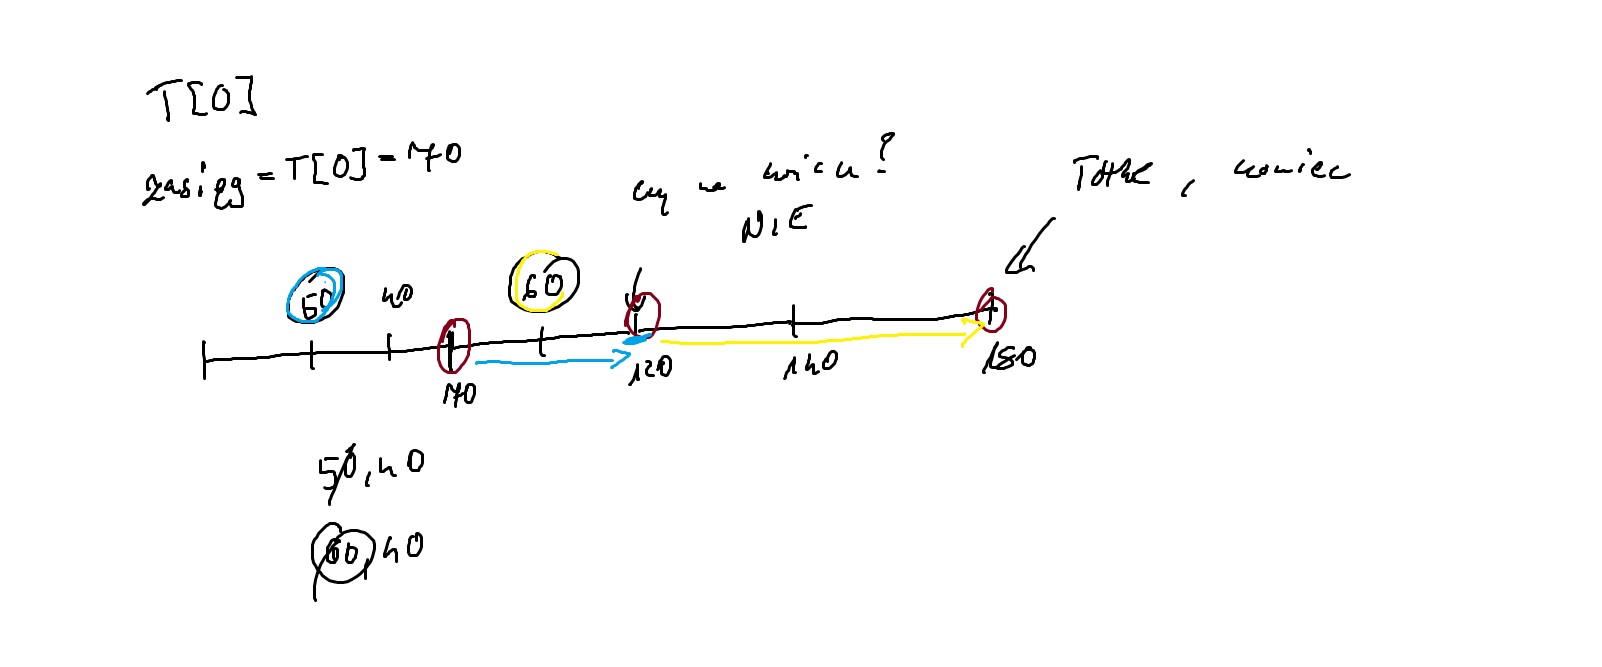 T[0]
zasięg = T[0] = 70
czy na końcu?
NIE
TAK, koniec
50 40 60
70 120 140 180
50, 40
60, 40